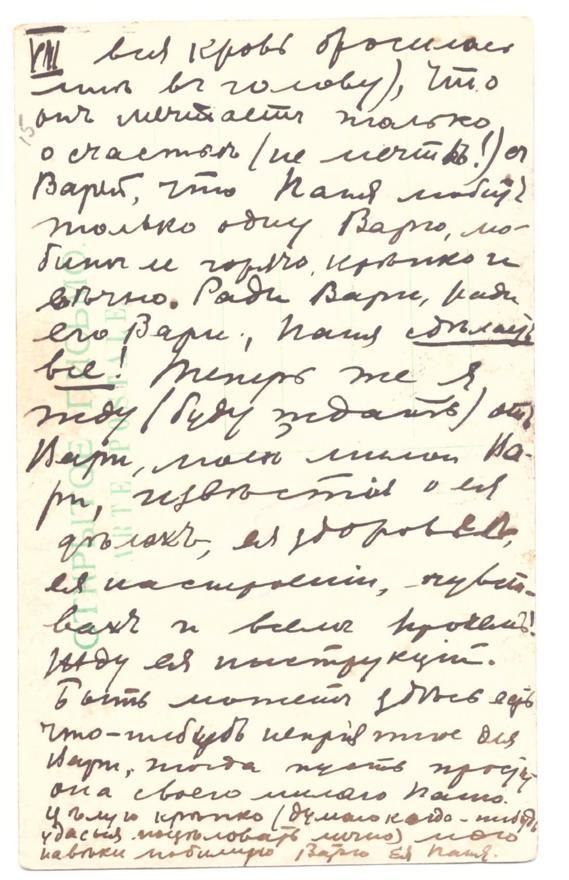 VIII вся кровь бросилась
мнѣ въ голову), что
онъ мечтаетъ только
о счастьи (не мечтѣ!) съ
Варей, что Паня любитъ
только одну Варю, лю-
битъ и горячо, крѣпко и
вѣчно. Ради Вари, ради
его Вари, Паня сдѣлаетъ
все! Теперь же я
жду (буду ждать) отъ
Вари, моей милой Ва-
ри, извѣстій о ея
дѣлахъ, ея здоровьѣ,
ея настроеніи, чувст-
вахъ и всемъ прочемъ!
Жду ея инструкцій.
Быть можетъ здѣсь есть
что-нибудь непріятное для
Вари, тогда пусть проститъ
она своего милаго Паню.
Цѣлую крѣпко (думаю когда-нибудь
удастся поцѣловать лично) мою
навѣки любимую Варю Ея Паня.
15
ОТКРЫТОЕ ПИСЬМО.
CARTE POSTALE